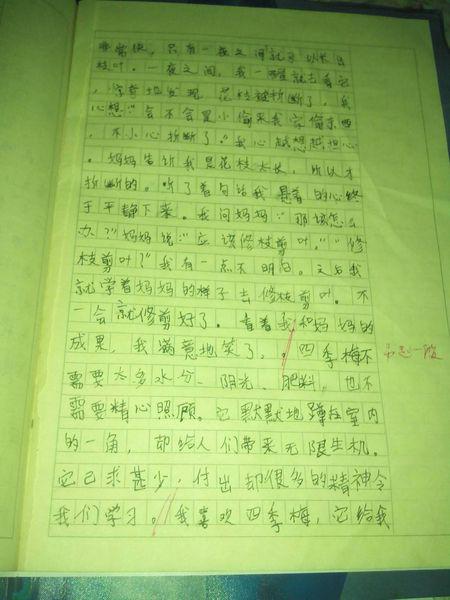 非常快，只有一夜之间就可以长出
枝叶。一夜之间，我一醒就去看它
，惊奇地发现，花枝被折断了，我
心想："会不会是小偷来我家偷东西
，不小心折断了。"我心越想越担心
。妈妈告诉我是花枝太长，所以才
折断的。听了着句话我悬着的心终
于平静下来。我问妈妈："那该怎么
办？"妈妈说："应该修枝剪叶。""修
枝剪叶？"我有一点不明白。之后我
就学着妈妈的样子去修枝剪叶。不
一会就修剪好了。看着我和妈妈的
成果，我满意地笑了，。四季梅不
需要太多水分、阳光、肥料。也不
需要精心照顾。它默默地蹲在室内
的一角，却给人们带来无限生机。
它已求甚少，付出却很多的精神令
我们学习。我喜欢四季梅，它给我
另起一段